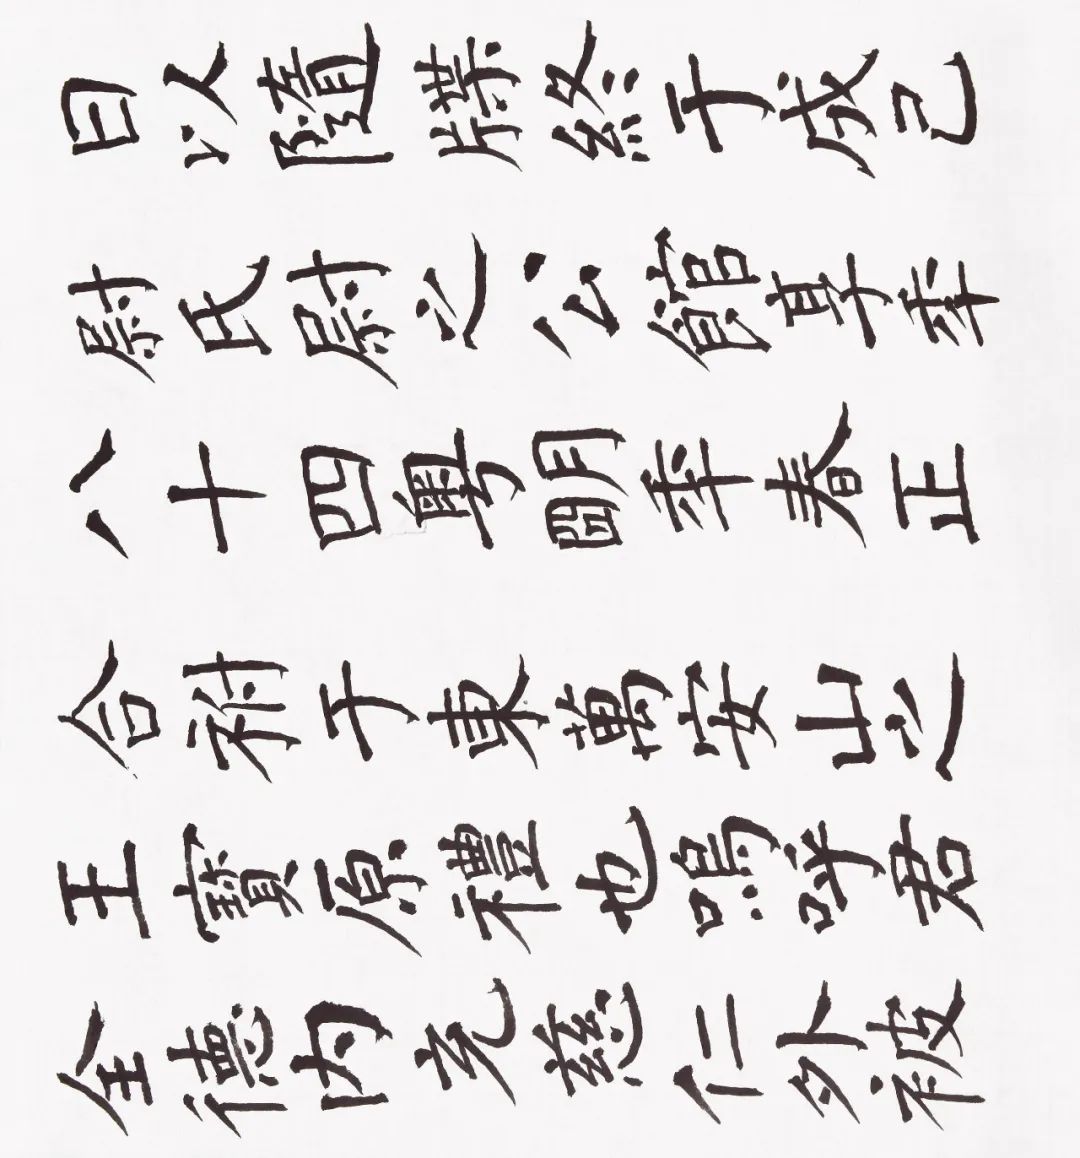 日以隨牒終于成己
尉氏尉之公館享年
八十四粵明年春正
合祔于東萬安山之
王寶原禮也嗚呼君
全德內充慈仁外被